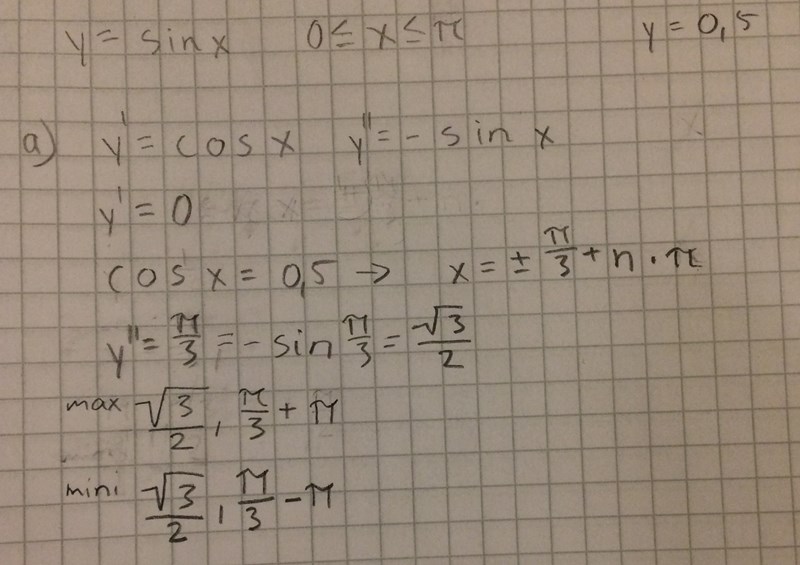 y = sin x 0 ≤ x ≤ π y = 0,5
a) y' = cos x y'' = - sin x
y' = 0
cos x = 0,5 → x = ± π/3 + n · π
y'' = π/3 = - sin π/3 = √3/2
max √3/2, π/3 + π
mini √3/2, π/3 - π